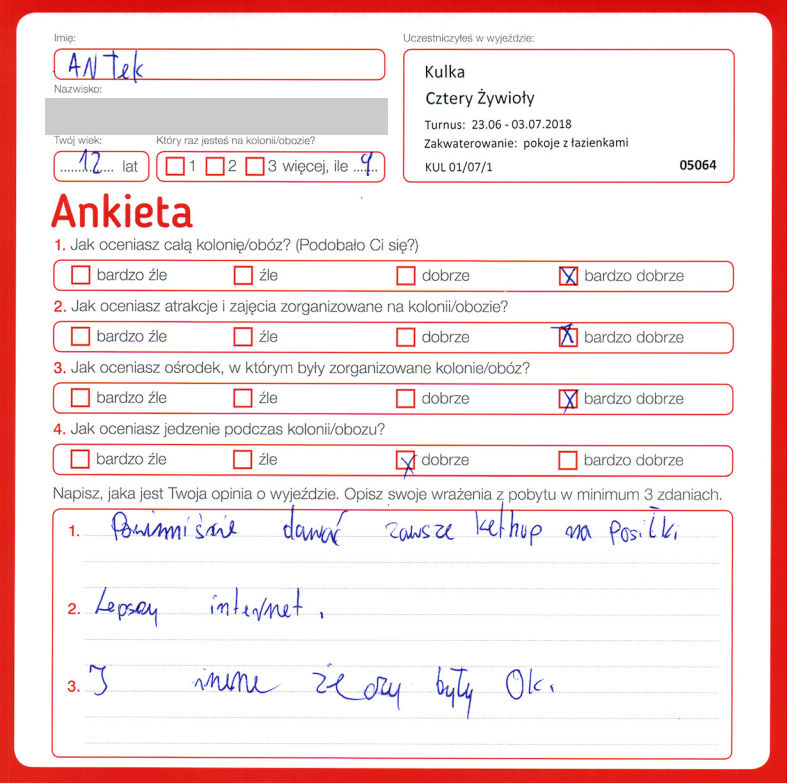 Imię:
ANTek
Nazwisko:
Twój wiek:
12 lat
Który raz jesteś na kolonii/obozie?
1 2 3 więcej, ile 9
Uczestniczyłeś w wyjeździe:
Kulka
Cztery Żywioły
Turnus: 23.06 - 03.07.2018
Zakwaterowanie: pokoje z łazienkami
KUL 01/07/1 05064
Ankieta
1. Jak oceniasz całą kolonię/obóz? (Podobało Ci się?)
bardzo źle źle dobrze bardzo dobrze
2. Jak oceniasz atrakcje i zajęcia zorganizowane na kolonii/obozie?
bardzo źle źle dobrze bardzo dobrze
3. Jak oceniasz ośrodek, w którym były zorganizowane kolonie/obóz?
bardzo źle źle dobrze bardzo dobrze
4. Jak oceniasz jedzenie podczas kolonii/obozu?
bardzo źle źle dobrze bardzo dobrze
Napisz, jaka jest Twoja opinia o wyjeździe. Opisz swoje wrażenia z pobytu w minimum 3 zdaniach.
1. Powinniście dawać zawsze kethup na posiłki
2. Lepszy internet.
3. I inne żeczy były Ok.